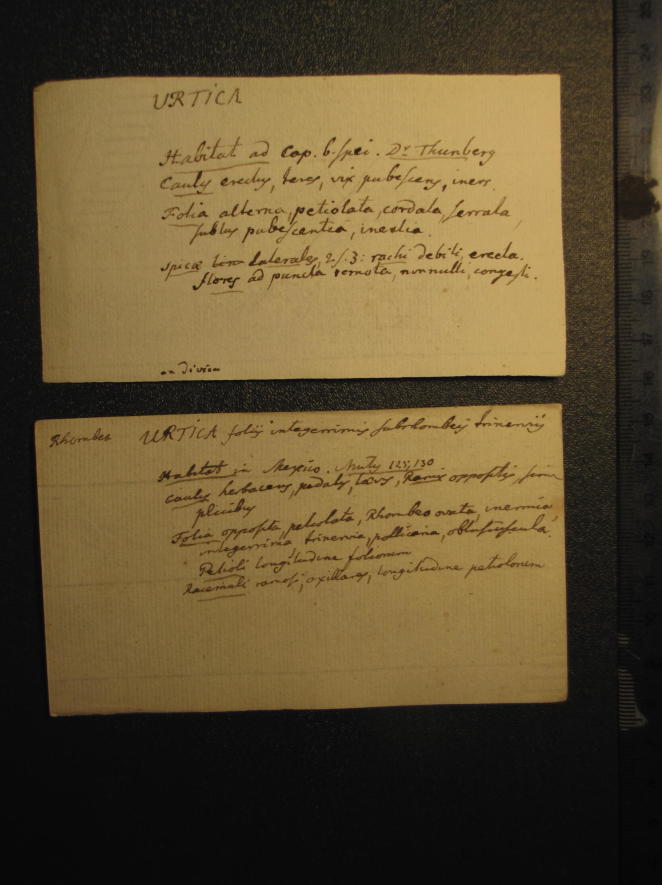 URTICA
Habitat ad Cap. b. spei. Dr Thunberg
Caulis erectus, teres, vix pubescens, iners.
Folia alterna, petiolata, cordata, serrata,
subtus pubescentia, inermia.
Spicæ laterales, 2 s. 3: rachi debili, erecta.
flores ad puncta remota, nonnulli, congesti.
an divica
Rhombea URTICA foliis integerrimis subrhombeis trinerviis
Habitat in Mexico. Mutis 125, 130
Caulis herbaceus, pedalis, lævis, Ramis oppositis, sim
plicibus
Folia opposita, petiolata, Rhombeo ovata, inermia,
integerrima trinervia, pollicaria, obtusiuscula.
Petioli longitudine foliorum
Racemuli ramosi, axillares, longitudine petiolorum